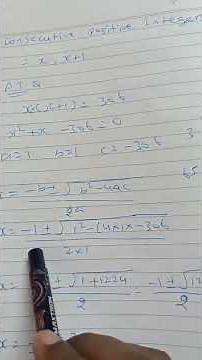 consecutive positive integers
= x, x+1
A.T.Q
x(x+1) = 306
x² + x - 306 = 0
a=1 b=1 c=-306
x = -b ± √b²-4ac
2a
x = -1 ± √1²-(4×1×-306
2×1
± √1+1224
2
= -1 ± √12
2